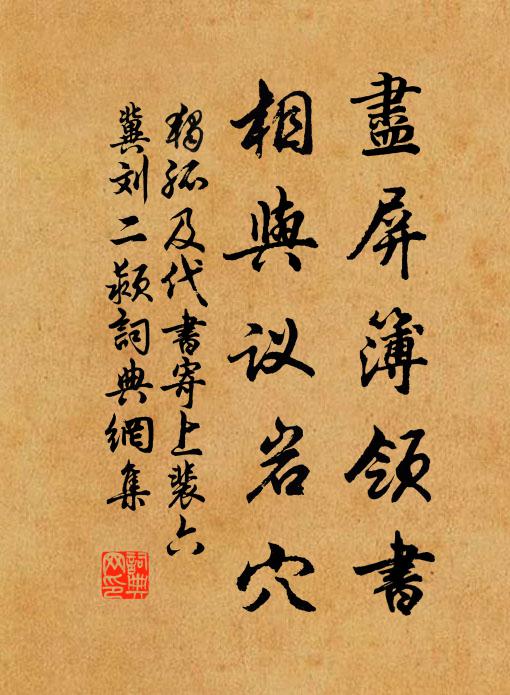 盡屏簿領書
相與议岩穴
獨孤及代書寄上裴六
冀刘二颍詞典網集
詞典网印